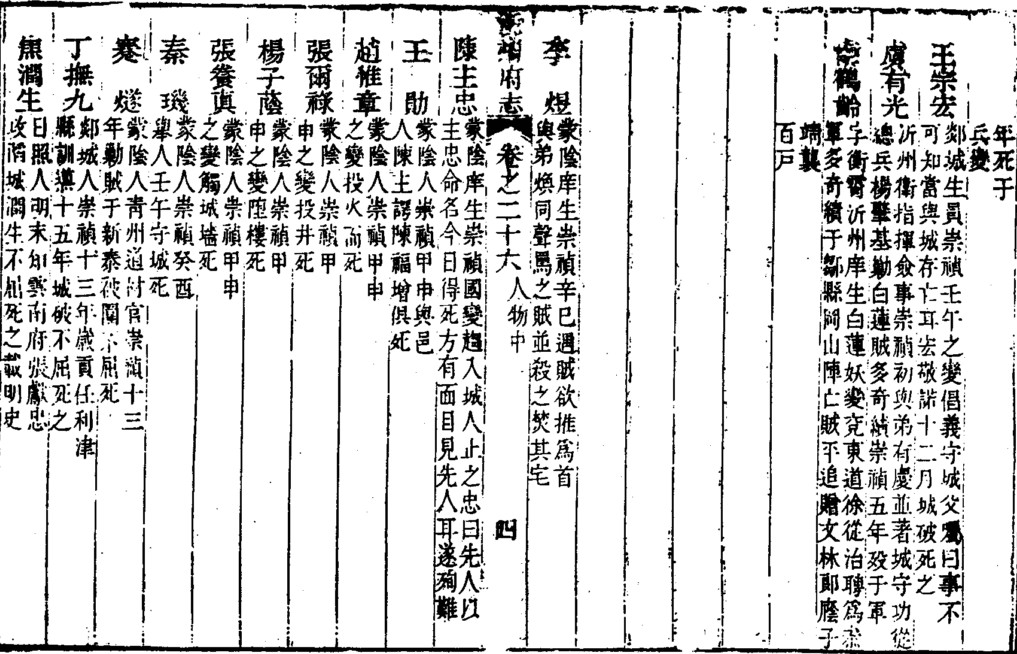 年死于
兵變
王宗宏
郯城生員崇禎壬午之變倡義守城父囑曰事不
可知當與城存亡耳宏敬諾十二月城破死之
虞有光
沂州衛指揮僉事崇禎初與弟有慶並著城守功從
總兵楊肇基勦白蓮賊多奇績崇禎五年歿于軍
鶴齡
字衛霄沂州庠生白蓮妖變兖東道徐從治聘爲叅
軍多奇績于鄒縣岡山陣亡賊平追贈文林郎廕子
靖襲
百戶
李煜
蒙陰庠生崇禎辛巳遇賊欲推爲首
與弟煥同聲罵之賊並殺之焚其宅
府志
卷之二十六 人物中
四
陳主忠
蒙陰庠生崇禎國變趨入城人止之忠曰先人以
主忠命名今日得死方有面目見先人耳遂殉難
王勛
蒙陰人崇禎甲申與邑
人陳主謨陳福增俱死
趙惟章
蒙陰人崇禎甲申
之變投火而死
張爾祿
蒙陰人崇禎甲
申之變投井死
楊子蔭
蒙陰人崇禎甲
申之變墮樓死
張養眞
蒙陰人崇禎甲申
之變觸城墻死
秦璣
蒙陰人崇禎癸酉
舉人壬午守城死
燧
蒙陰人青州道官崇禎十三
年勦賊于新泰被圍不屈死
丁撫九
郯城人崇禎十三年歲貢任利津
縣訓導十五年城破不屈死之
焦潤生
日照人明末知雲南府張獻忠
攻陷城潤生不屈死之載明史